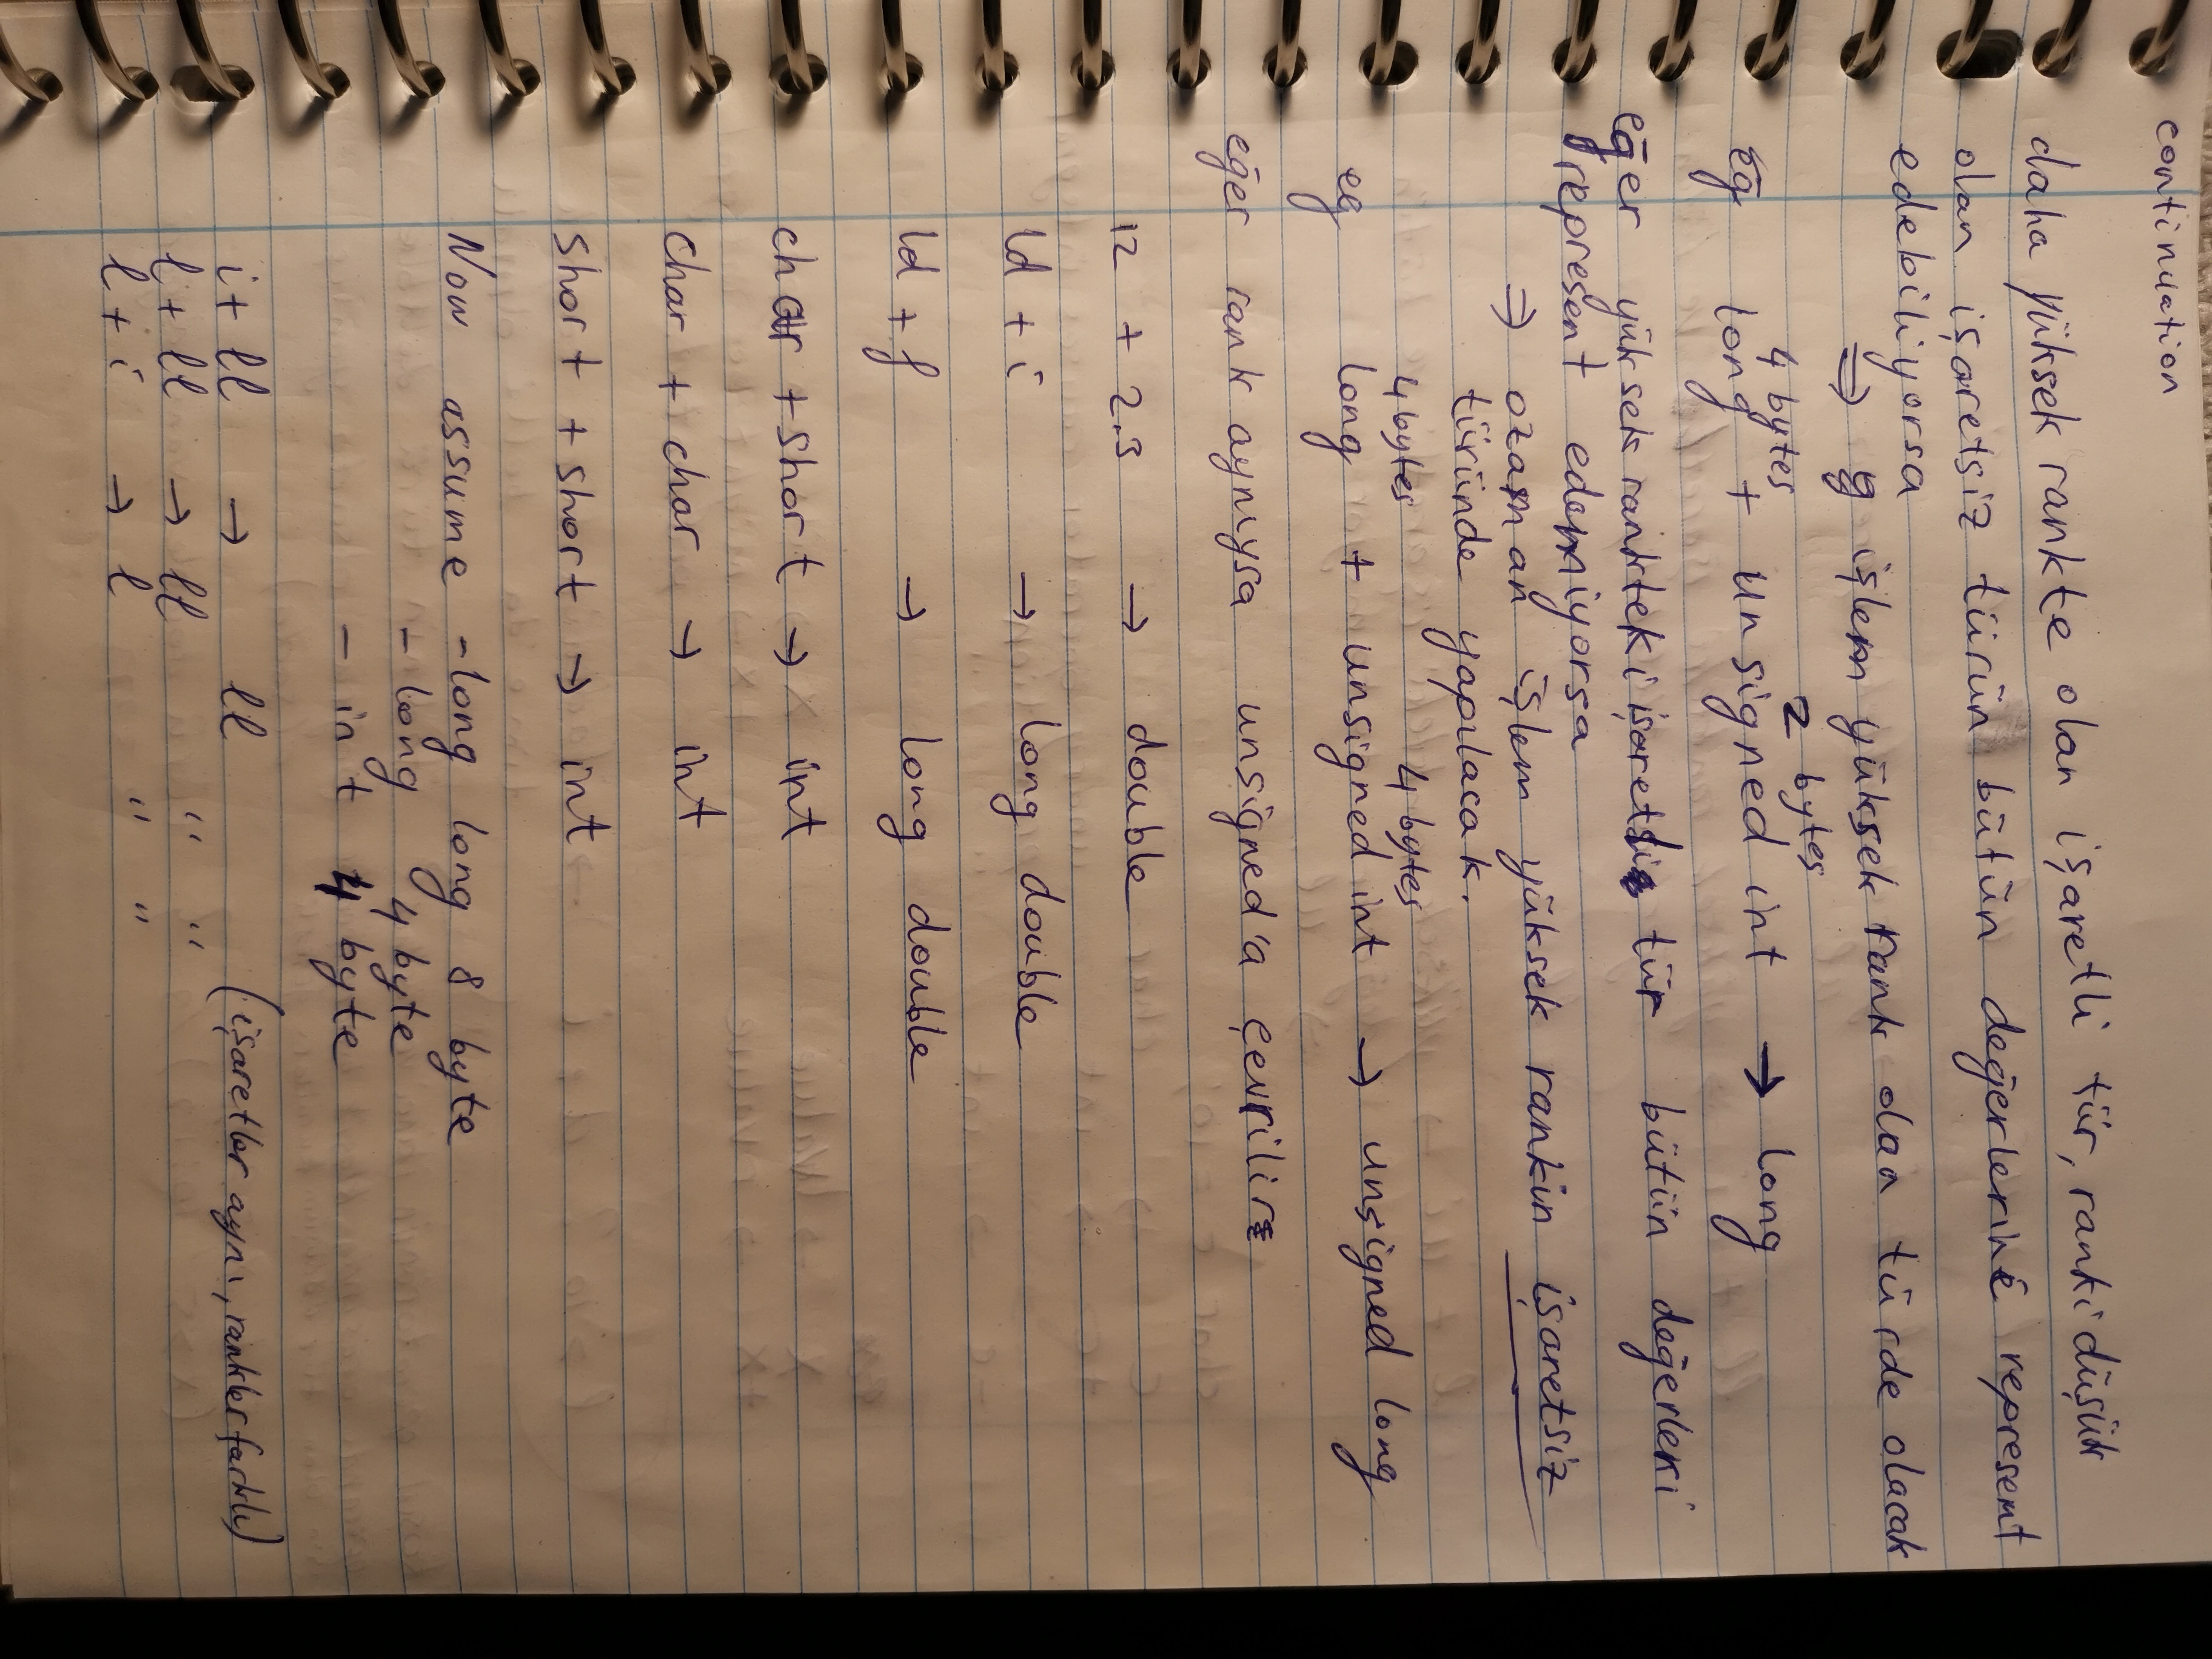 continuation
daha yüksek rankte olan işaretli tür, ranki düşük
olan işaretsiz türün bütün değerlerine represent
edebiliyorsa
⇒ işlem yüksek rank olan türde olacak
4 bytes 2 bytes
eg long + unsigned int → long
eğer yüksek rankteki işaretli tür bütün değerleri
represent edemiyorsa
⇒ ozaman işlem yüksek rankin işaretsiz
türünde yapılacak.
4 bytes 4 bytes
eg long + unsigned int → unsigned long
eğer rank aynıysa unsigned'a çevrilir
12 + 2.3 → double
ld + i → long double
ld + f → long double
char + short → int
char + char → int
short + short → int
Now assume - long long 8 byte
- long 4 byte
- int 4 byte
i + ll → ll (işaretler aynı, rankler farklı)
l + ll → ll " "
l + i → l " "